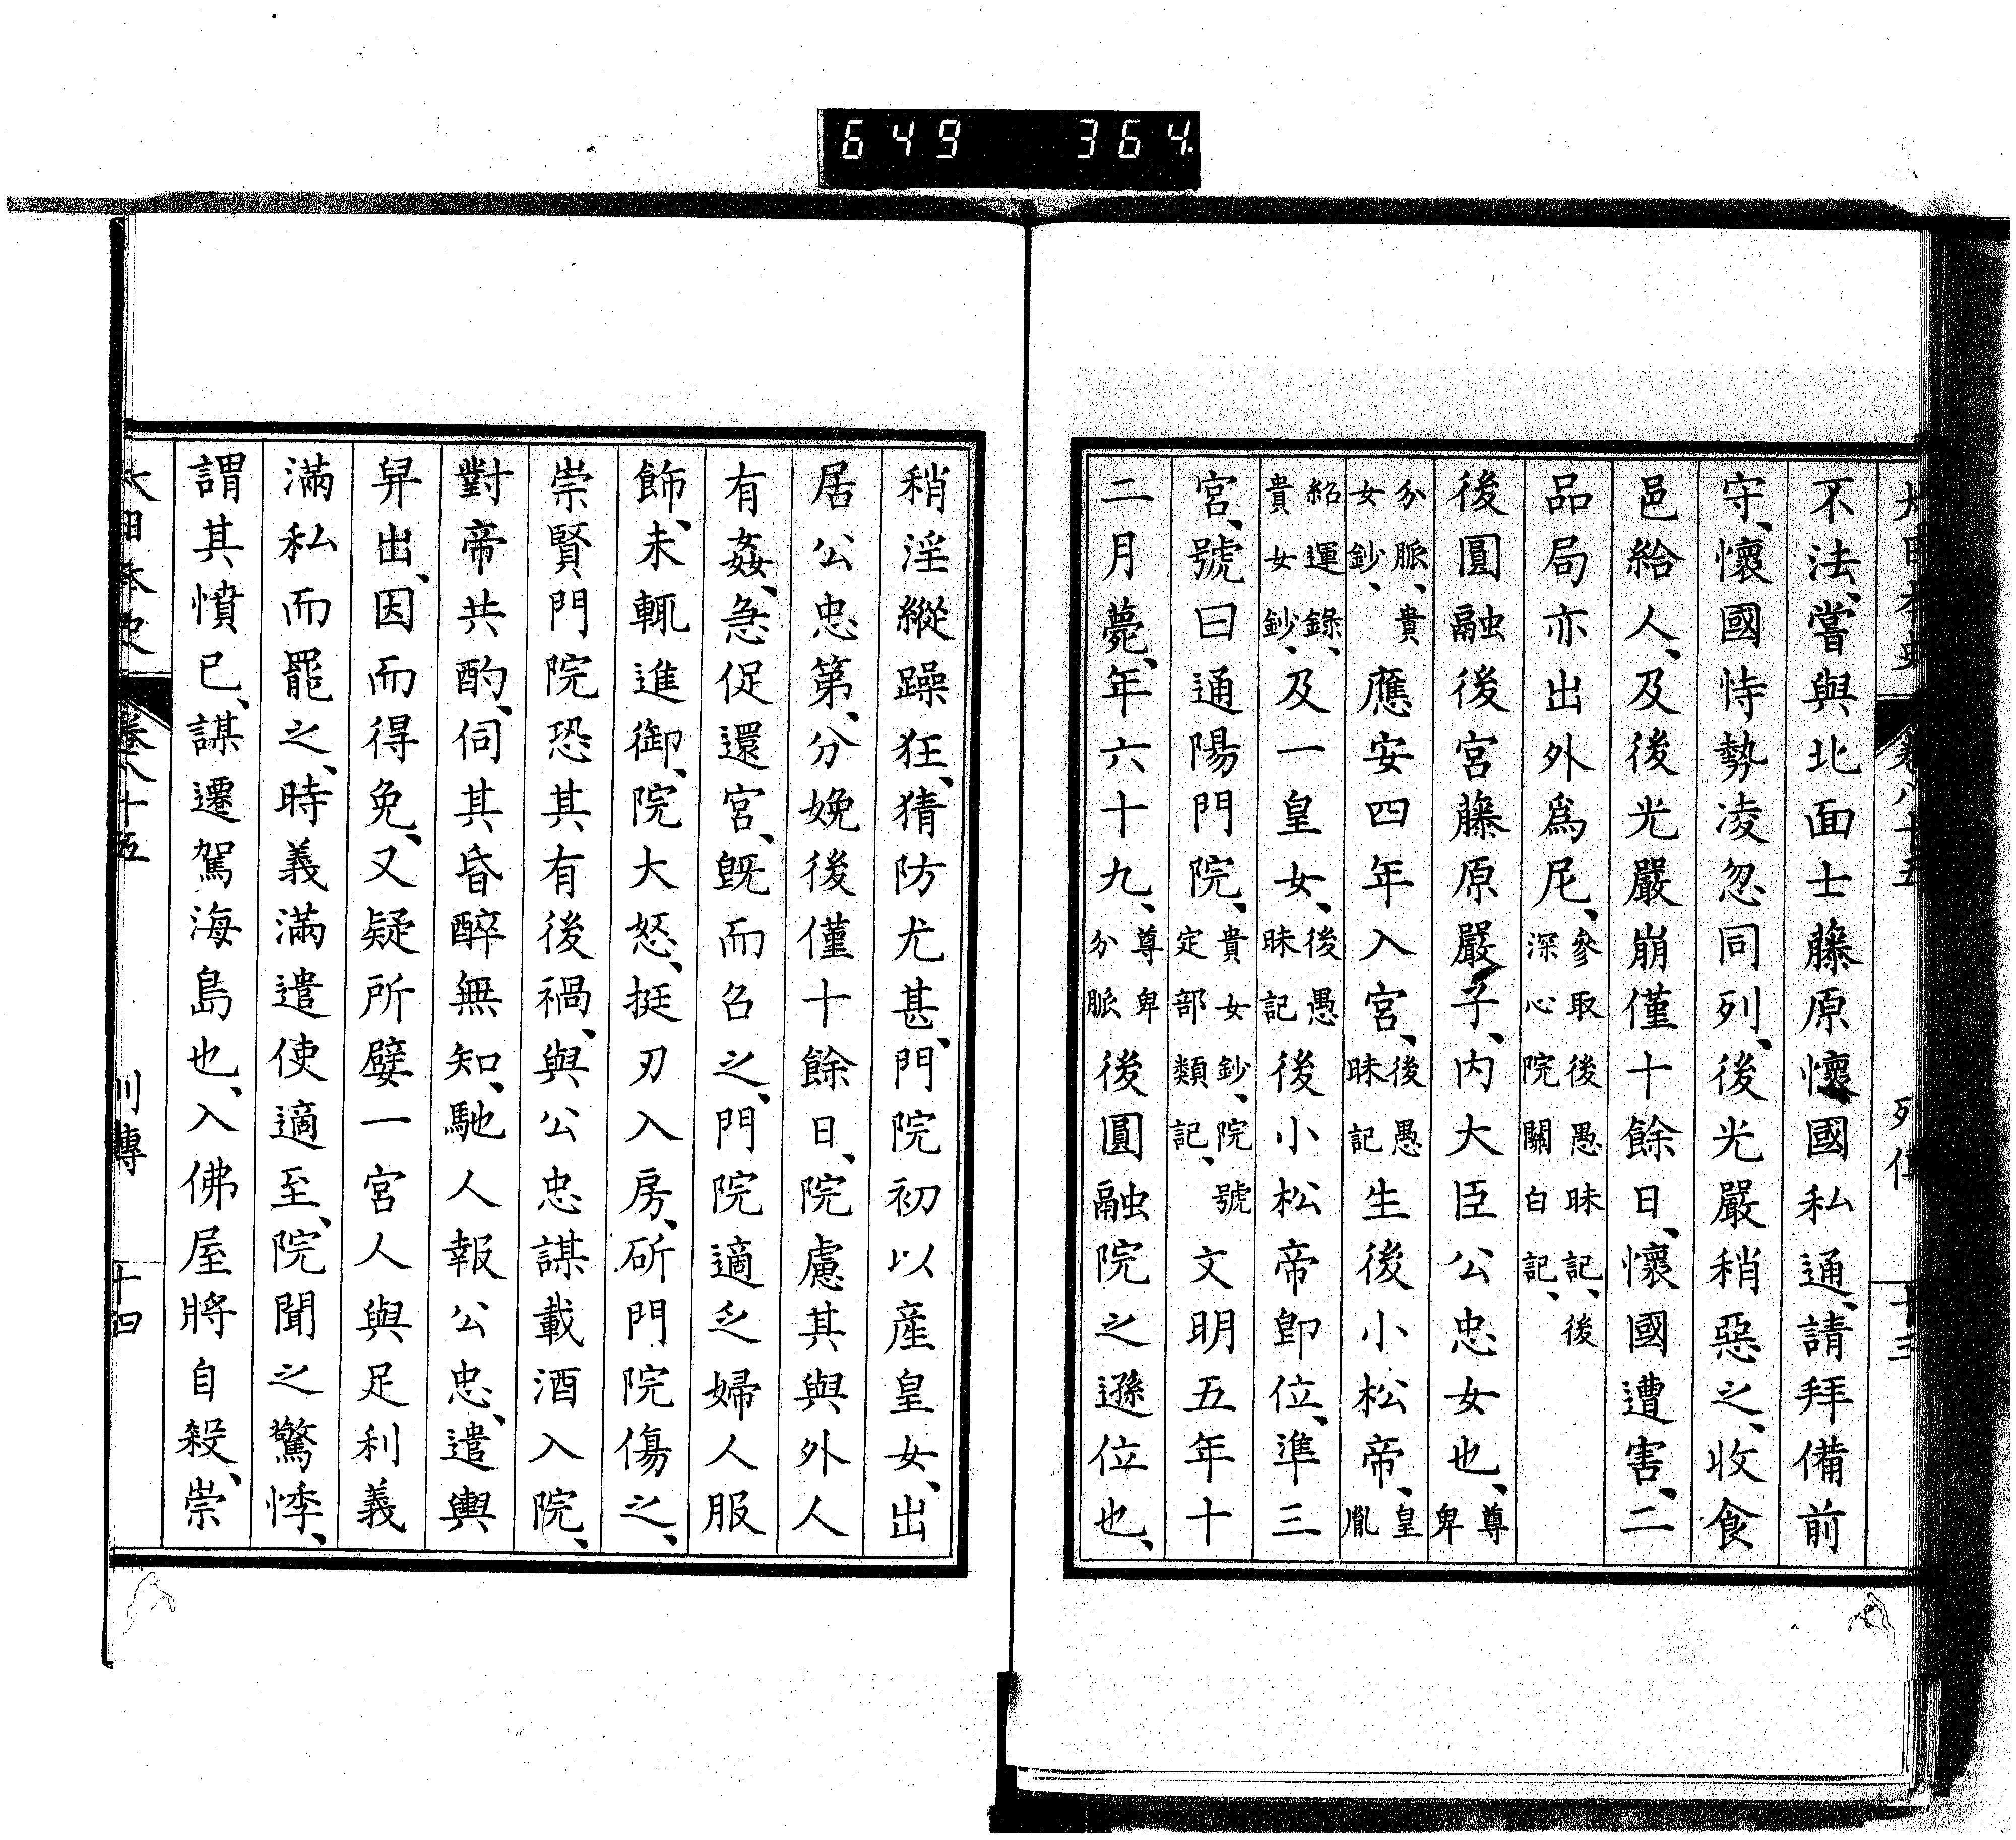 649 364.
大日本史 卷八十五 列傳 十三
不法、嘗與北面士藤原懷國私通、請拜備前
守、懷國恃勢凌忽同列、後光嚴稍惡之、收食
邑給人、及後光嚴崩僅十餘日、懷國遭害、二
品局亦出外爲尼、參取後愚昧記、後深心院關白記、
後圓融後宮藤原嚴子、內大臣公忠女也、尊卑
分脈、貴女鈔、應安四年入宮、後愚昧記生後小松帝、皇胤
紹運錄、貴女鈔、及一皇女、後愚昧記後小松帝卽位、準三
宮、號曰通陽門院、貴女鈔、院號定部類記、文明五年十
二月薨、年六十九、尊卑分脈後圓融院之遜位也、
稍淫縱躁狂、猜防尤甚、門院初以產皇女、出
居公忠第、分娩後僅十餘日、院慮其與外人
有姦、急促還宮、既而召之、門院適乏婦人服
飾、未輒進御、院大怒、挺刃入房、斫門院傷之、
崇賢門院恐其有後禍、與公忠謀載酒入院、
對帝共酌、伺其昏醉無知、馳人報公忠、遣輿
舁出、因而得免、又疑所嬖一宮人與足利義
滿私而罷之、時義滿遣使適至、院聞之驚悸、
謂其憤已、謀遷駕海島也、入佛屋將自殺、崇
大日本史 卷八十五 列傳 十四